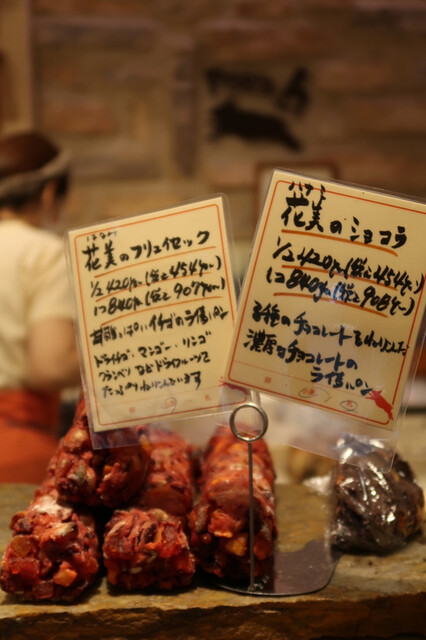 はなみ
花美のフリュイセック
1/2 420円(税込454円)
1コ 840円(税込907円)
甘酸っぱいイチゴのライ麦パン
ドライイチゴ・マンゴー・リンゴ
クランベリーなどドライフルーツ
たっぷり
ハナミ
花美のショコラ
1/2 420円(税込454円)
1コ 840円(税込908円)
3種のチョコレートを
濃厚チョコレートの
ライ麦パン